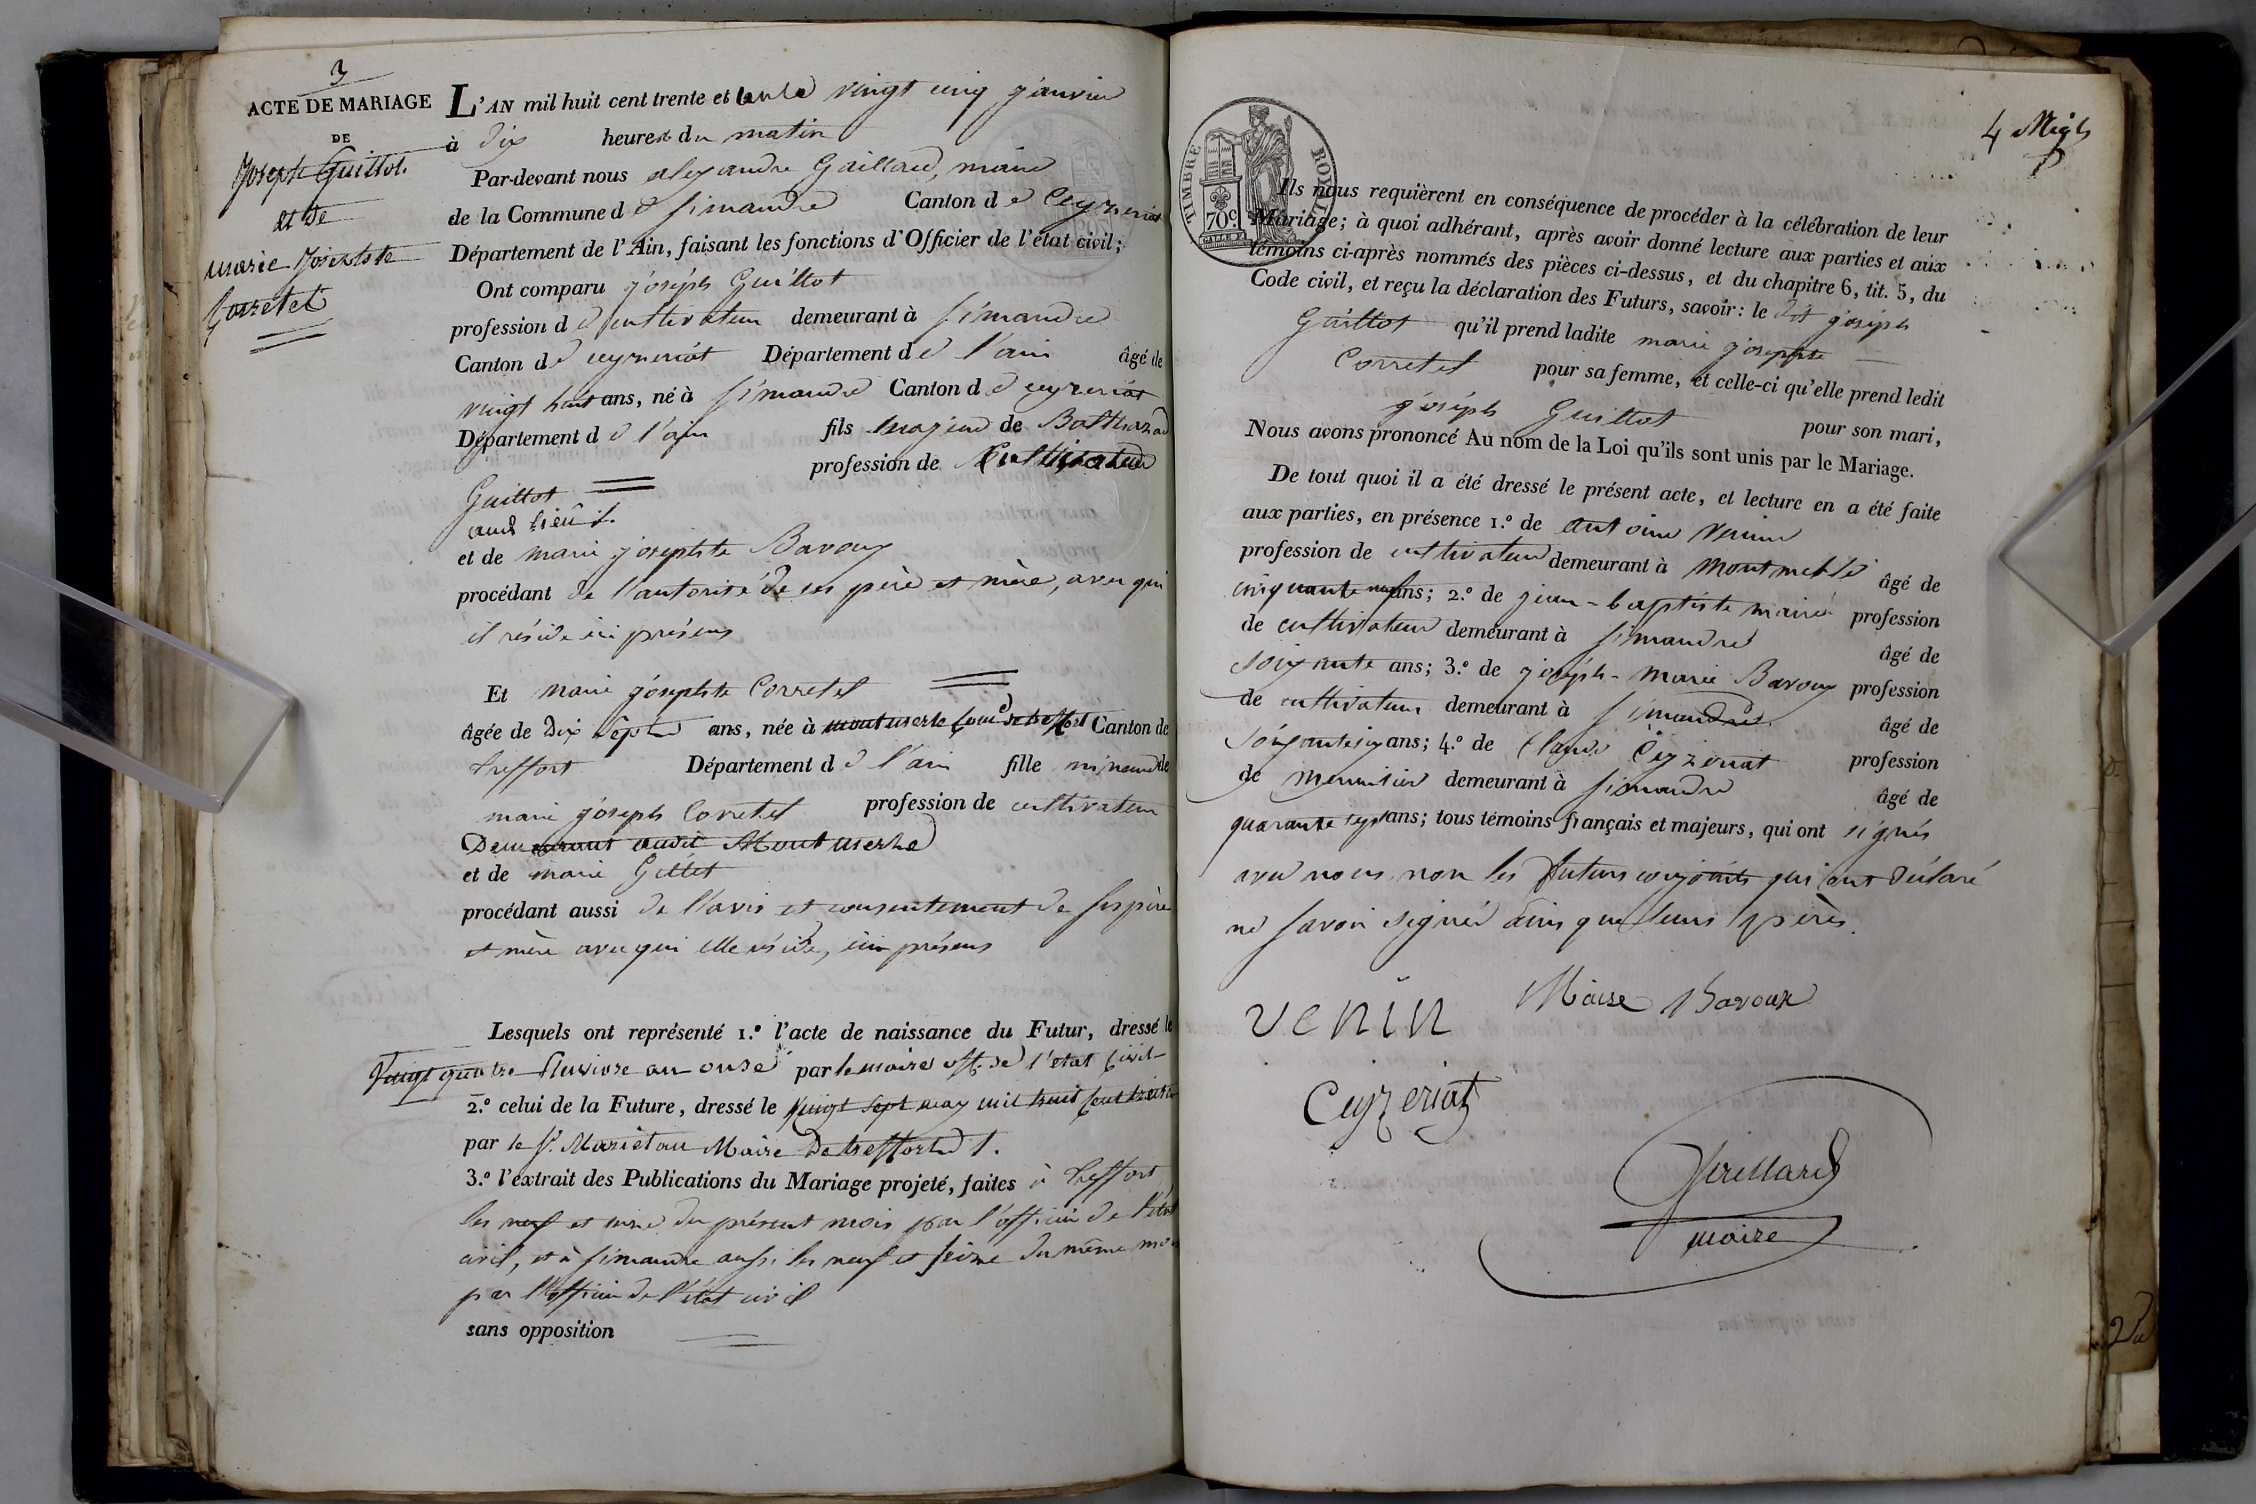 3
ACTE DE MARIAGE
DE
Joseph Guillot.
et de
marie Josephte
Corretel
L'AN mil huit cent trente et un le vingt cinq janvier
à dix heures du matin
Par-devant nous alexandre Gaillard, maire
de la Commune de Simandre Canton de Ceyzeriat
Département de l'Ain, faisant les fonctions d'Officier de l'état civil;
Ont comparu joséph Guillot
profession de cultivateur demeurant à Simandre
Canton de ceyzeriat Département de l'ain âgé de
vingt huit ans, né à Simandre Canton de ceyzeriat
Département de l'ain fils majeur de Balthazad
profession de Cultivateur
Guillot
aud. lieu
et de marie josephte Bavoux
procédant de l'autorité de ses père et mère, avec qui
il réside ici présens
Et marie josephte Corretel
âgée de Dix Sept ans, née à montmerle Come de treffort Canton de
treffort Département de l'ain fille mineure de
marie joseph Corretel profession de cultivateur
Demeurant audit Montmerle
et de marie Gillet
procédant aussi de l'avis et consentement de ses père
et mère avec qui elle réside, ici présens
Lesquels ont représenté 1.º l'acte de naissance du Futur, dressé le
Vingt quatre Pluviose an onze par le maire off. de l'état Civil
2.º celui de la Future, dressé le Vingt Sept may mil huit Cent treize
par le Sr. Marietan Maire De treffort
3.º l'extrait des Publications du Mariage projeté, faites à treffort
les neuf et seize du présent mois par l'officier de l'état
civil, et à Simandre aussi les neuf et seize du même mois
par l'officier de l'état civil
sans opposition
4 Migl
TIMBRE ROYAL
70c
Ils nous requièrent en conséquence de procéder à la célébration de leur
Mariage; à quoi adhérant, après avoir donné lecture aux parties et aux
témoins ci-après nommés des pièces ci-dessus, et du chapitre 6, tit. 5, du
Code civil, et reçu la déclaration des Futurs, savoir: le dit joséph
Guillot qu'il prend ladite marie josephte
Corretel pour sa femme, et celle-ci qu'elle prend ledit
joséph Guillot pour son mari,
Nous avons prononcé Au nom de la Loi qu'ils sont unis par le Mariage.
De tout quoi il a été dressé le présent acte, et lecture en a été faite
aux parties, en présence 1.º de antoine Venin
profession de cultivateur demeurant à Montmerle âgé de
cinquante neuf ans; 2.º de jean-baptiste maire profession
de cultivateur demeurant à Simandre âgé de
soixante ans; 3.º de joséph-marie Bavoux profession
de cultivateur demeurant à Simandre. âgé de
soixante six ans; 4.º de Claude Ceyzeriat profession
de meunier demeurant à Simandre âgé de
quarante sept ans; tous témoins français et majeurs, qui ont signés
avec nous, non les futurs conjoints qui ont déclaré
ne savoir signer ainsi que leurs pères.
venin Maire Bavoux
Ceyzeriat
Gaillard
maire